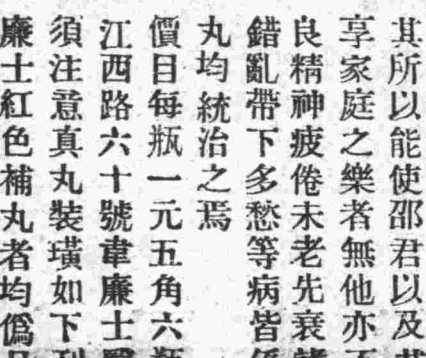 其所以能使邵君以及其
享家庭之樂者無他亦
良精神疲倦未老先衰
錯亂帶下多愁等病皆係
丸均統治之焉
價目每瓶一元五角六瓶
江西路六十號韋廉士醫
須注意真丸裝璜如下列
廉士紅色補丸者均僞